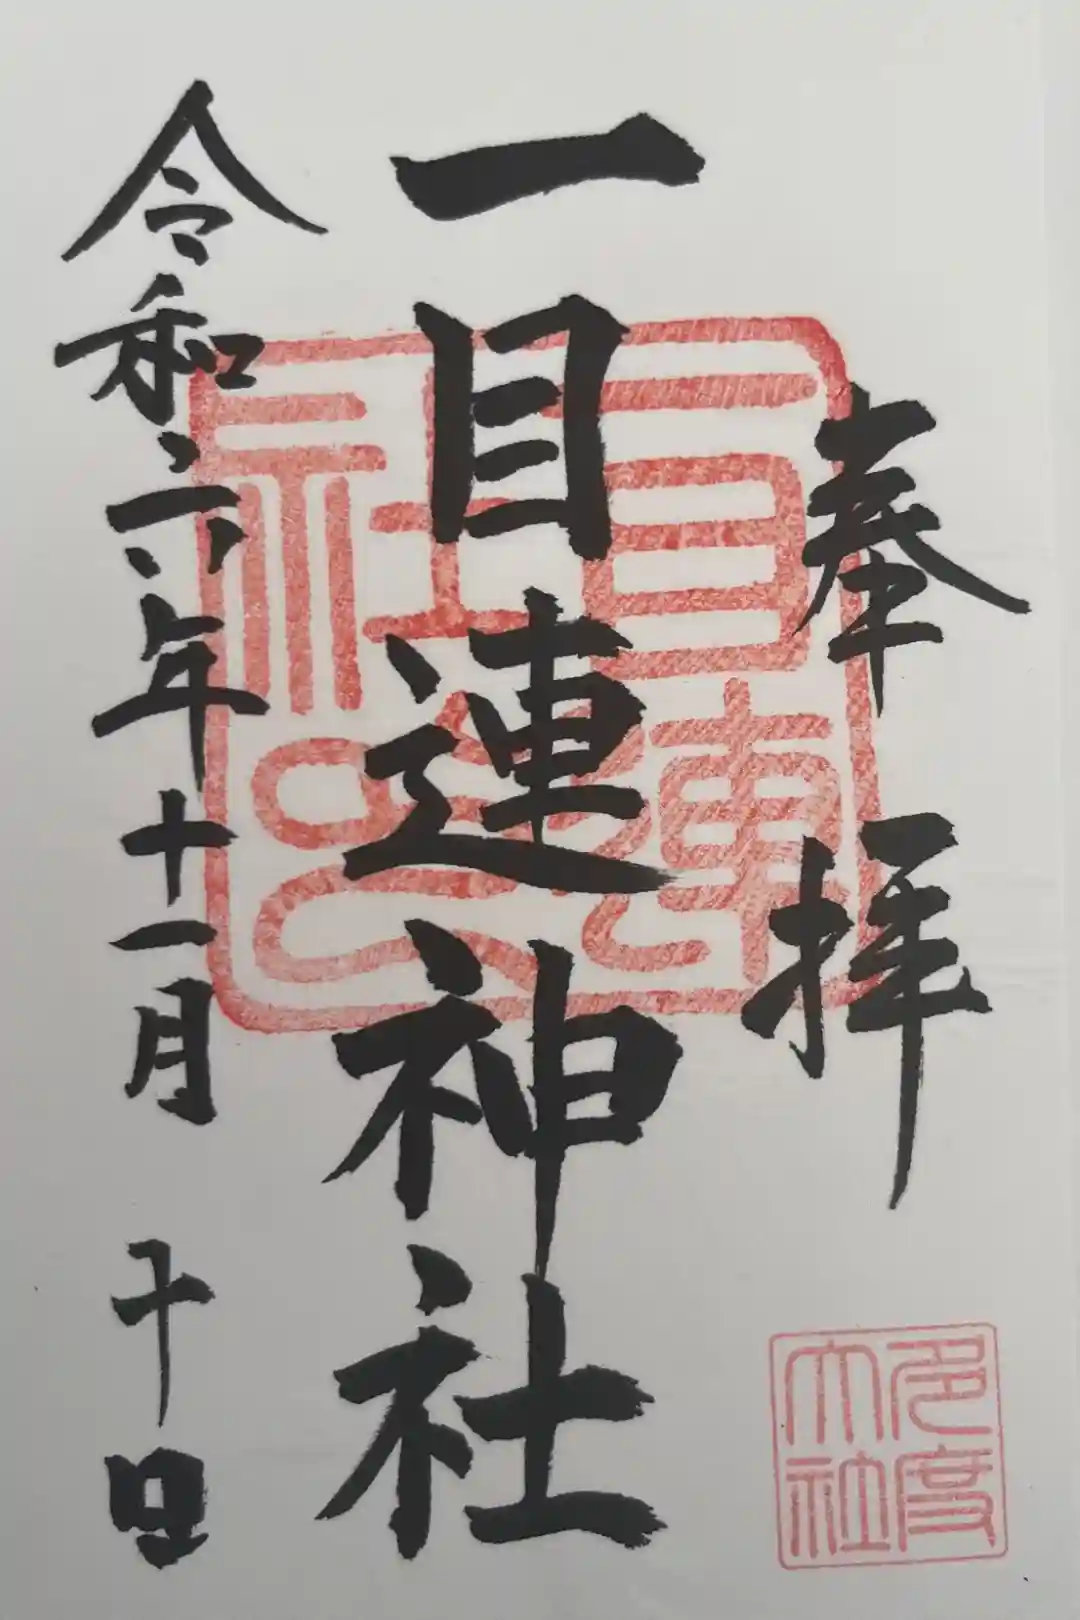 奉拝
一目連神社
令和六年十一月十日
目連社印
多度大社